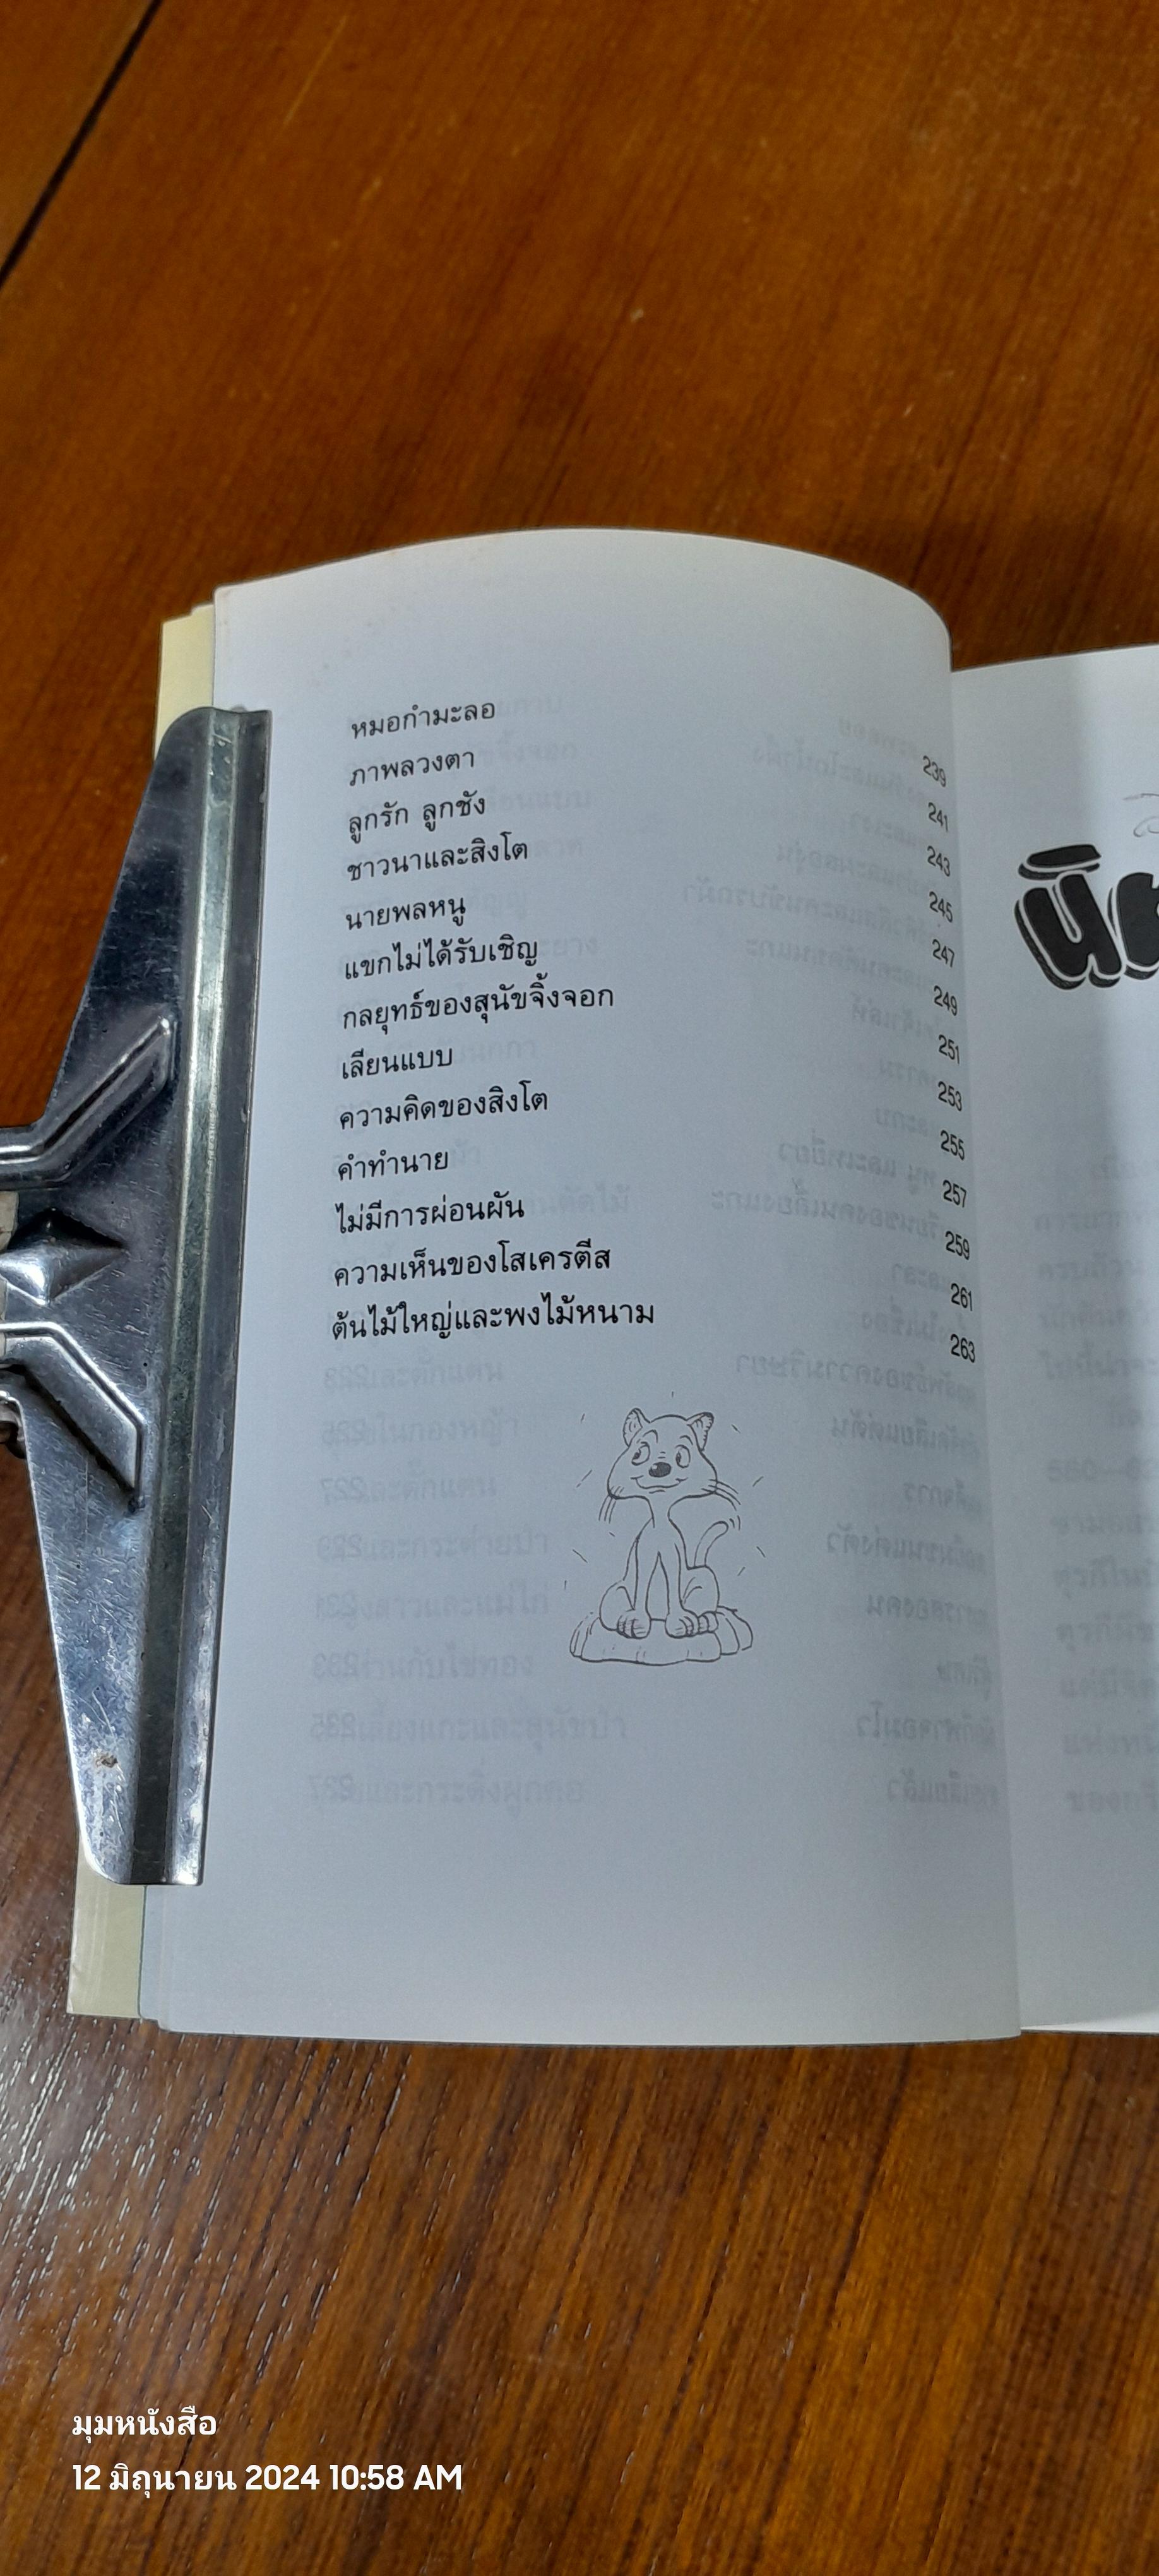 หมอกำมะลอ 239
ภาพลวงตา 241
ลูกรัก ลูกชัง 243
ชาวนาและสิงโต 245
นายพลหนู 247
แขกไม่ได้รับเชิญ 249
กลยุทธ์ของสุนัขจิ้งจอก 251
เลียนแบบ 253
ความคิดของสิงโต 255
คำทำนาย 257
ไม่มีการผ่อนผัน 259
ความเห็นของโสเครตีส 261
ต้นไม้ใหญ่และพงไม้หนาม 263
มุมหนังสือ
12 มิถุนายน 2024 10:58 AM